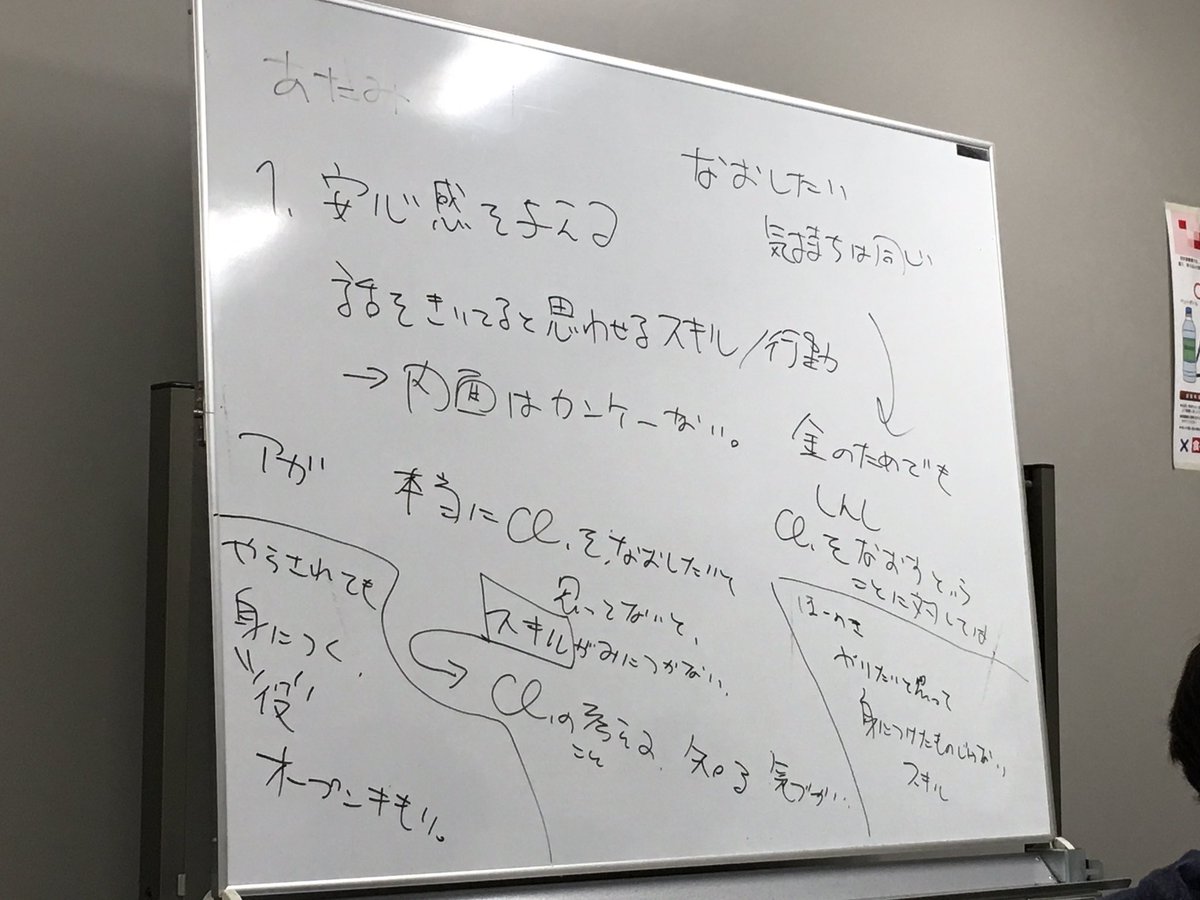 あたみ
1. 安心感を与える
話をきいてると思わせるスキル/行動
→ 内面はカンケーない。
アガ
本当にCl.をなおしたいて
思ってないと、
スキルがみにつかない。
Cl.の考える 知る 気づかい..
こと
なおしたい
気持ちは同じ
金のためでも
しんし
Cl.をなおすという
ことに対しては
やらされても
身につく.
"役"
オープンキもり。
ほーわき
やりたいと思って
身につけたものじゃない
スキル